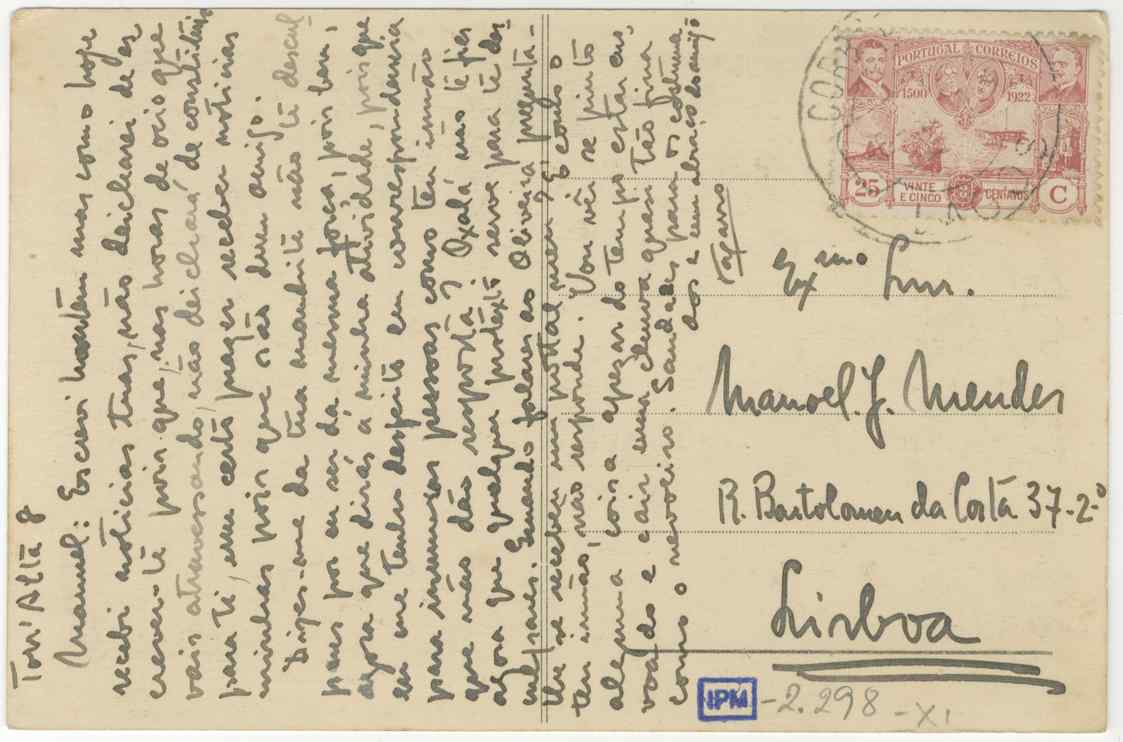 Torr'Alta 8
Manuel: Escrevi hontem mas como hoje
recebi nóticias tuas, não deicharei de es
crever-te pois que, nas horas de ocio que
vais atravessando, não deichará de constituir
para ti, um certo prazer receber nóticias
minhas pois que são dum amigo.
Dizes-me da tua mandrite não te descul
paus por eu ser da mesma força, pois bem,
agora que dirás á minha atividade, pois que
eu me tenho despeito em correspondencia
para inumeras pessoas como teu irmão
que não dão resposta? Oxalá não te fies
agora que qualquer protexto serve para te des
culpares. Quando falares ao Oliveira pregunta-
lhe se recebeu um postal meu. E como o
teu irmão, não responde. Vou vêr se pinto
alguma coisa apezar do tempo estar en
voado e cair uma chuva quasi tão fina
como o nevoeiro. Saudades para os costuma
dos e um abraço do amigo
Tagarro
PORTUGAL CORREIOS
1500 1922
25 VINTE E CINCO CENTAVOS C
Exmo Snr.
Manoel. J. Mendes
R. Bartolomeu da Costa 37-2º
Lisboa
IPM -2.298 -XI